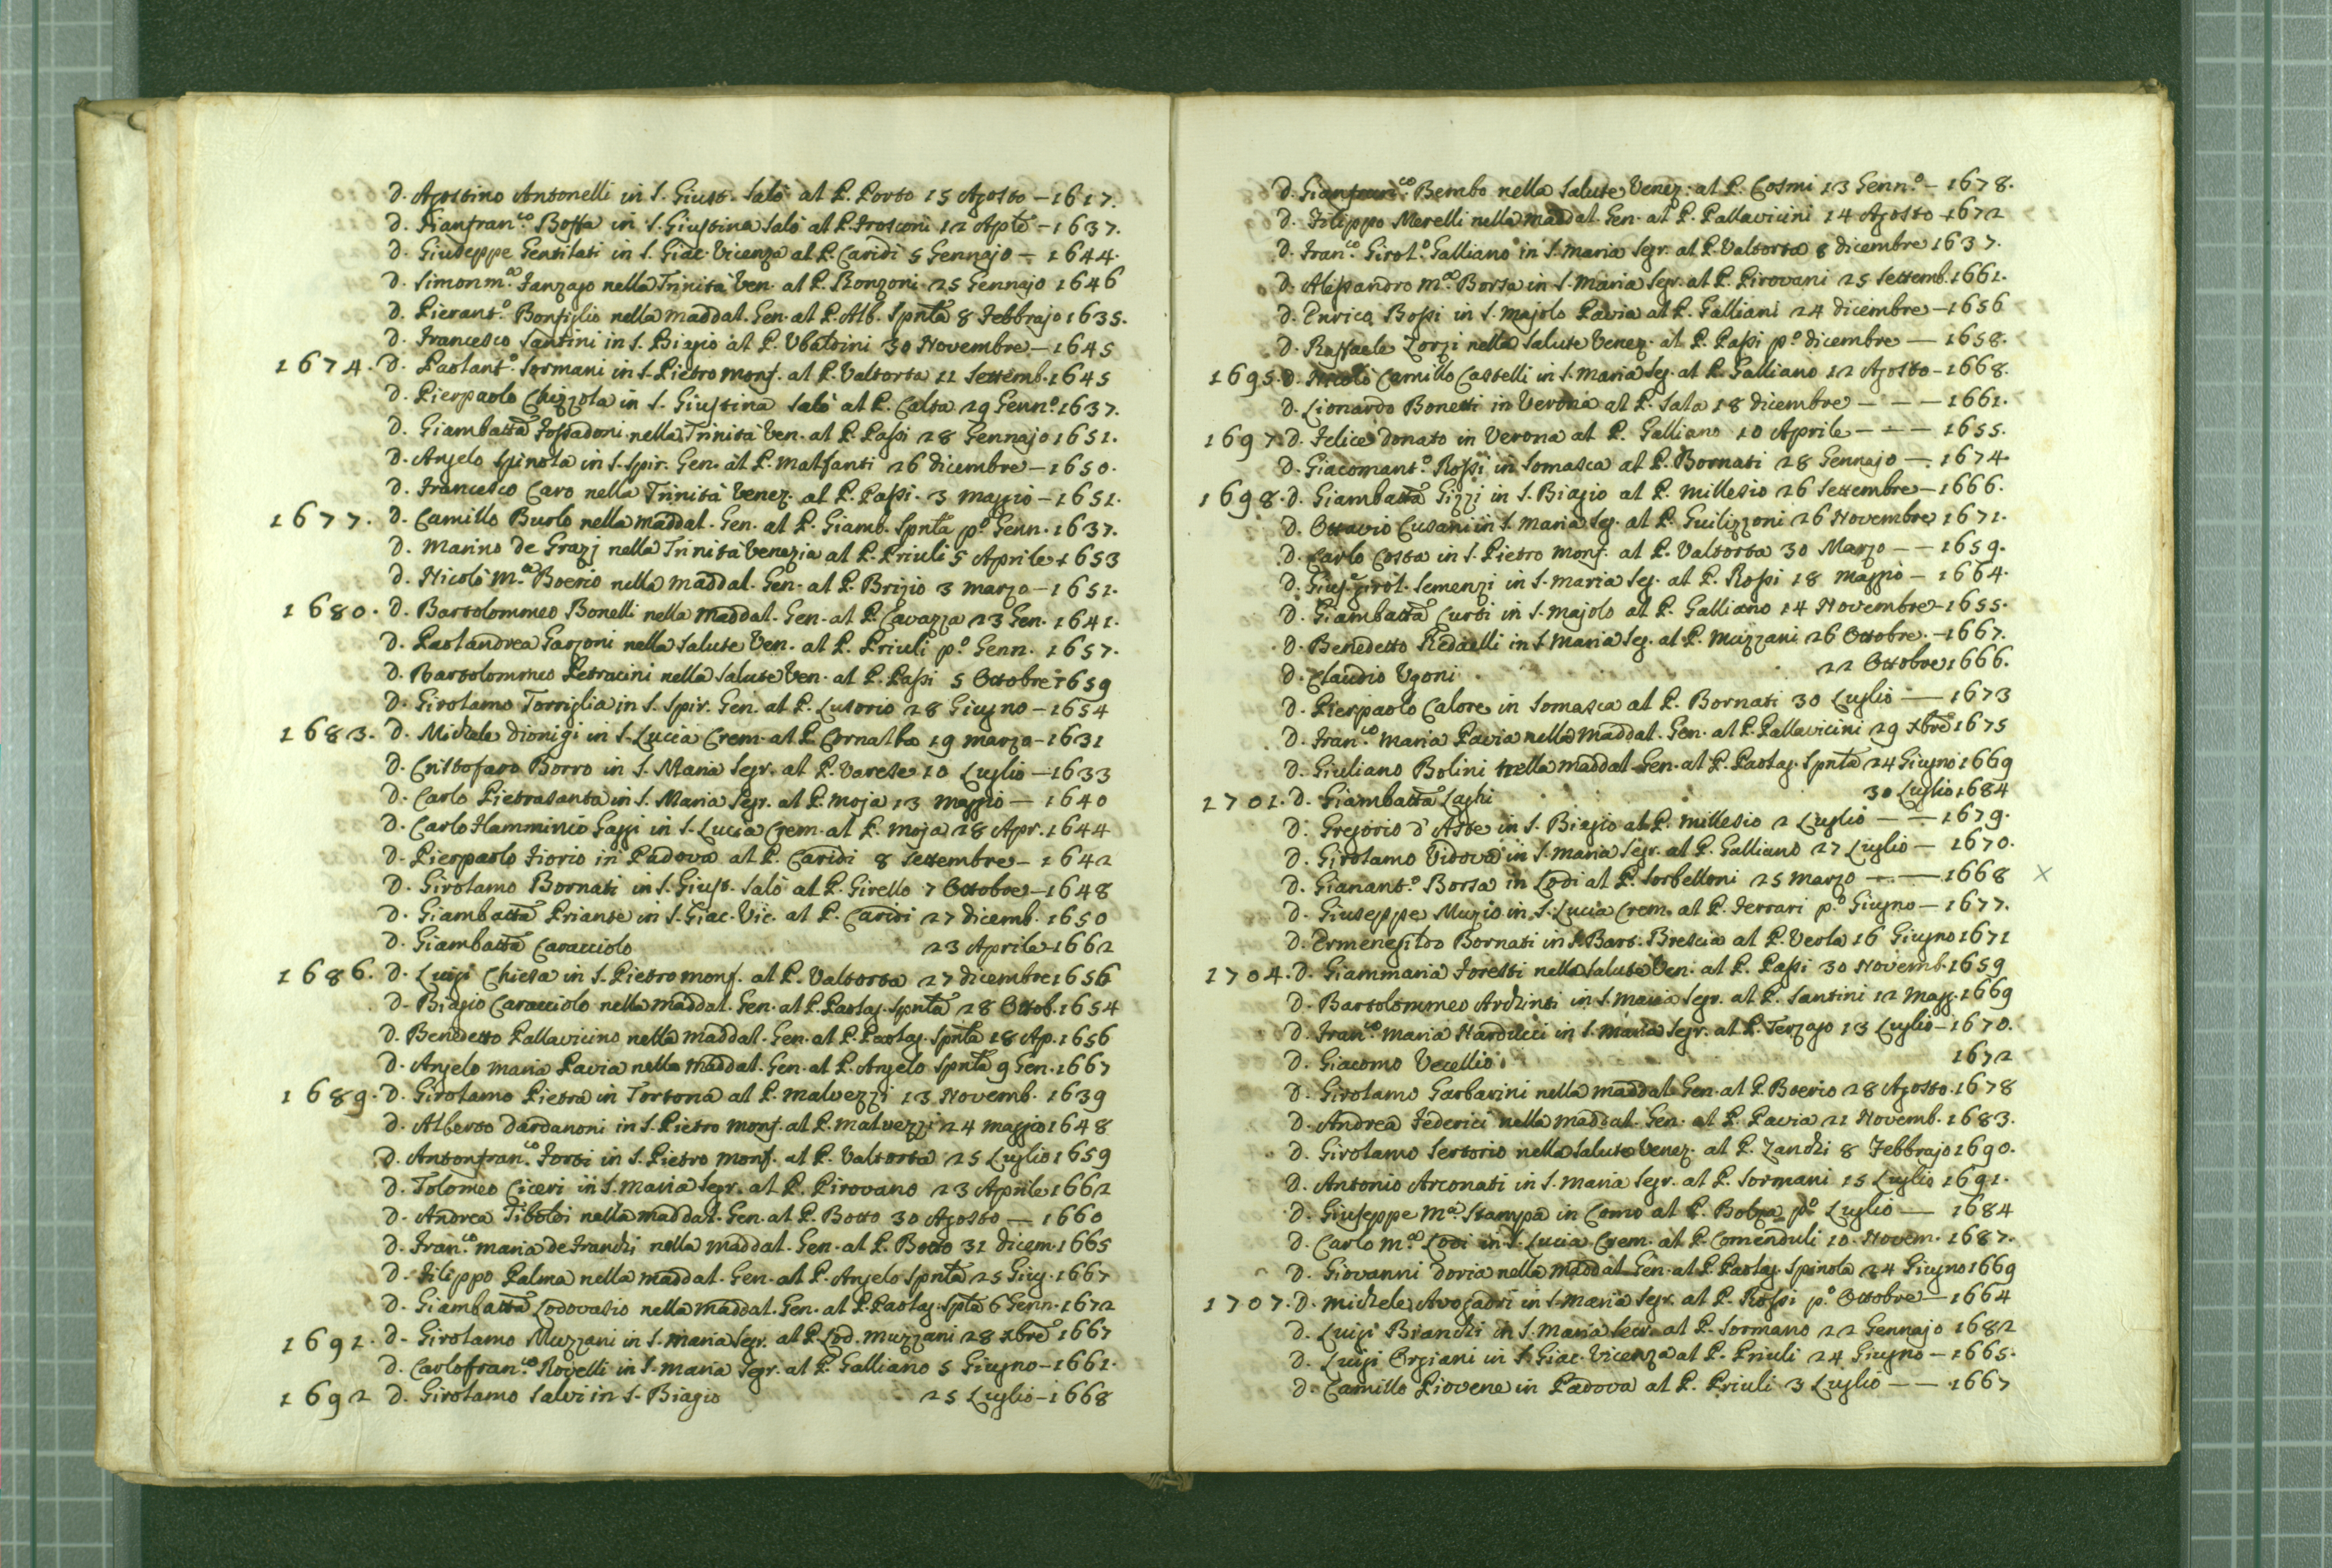 D. Agostino Antonelli in S. Giust. Salò al P. Porto 15 Agosto – 1617.
D. Gianfran.co Bossa in S. Giustina Salò al P. Frosconi 12 Aple – 1637.
D. Giuseppe Gentilati in S. Giac. Vicenza al P. Caridi 5 Gennajo – 1644.
D. Simon m.a Fanzago nella Trinità Ven. al P. Ronzoni 25 Gennajo 1646
D. Pierant.o Bonfiglio nella Maddal. Gen. al P. Alb. Spnla 8 Febbrajo 1635.
D. Francesco Santini in S. Biagio al P. Ubaldini 30 Novembre – 1645
1674. D. Paolant.o Sormani in S. Pietro Monf. al P. Valtorta 11 Settemb. 1645
D. Pierpaolo Chizzola in S. Giustina Salò al P. Calta 29 Genn.o 1637.
D. Giambatta Fossadoni nella Trinità Ven. al P. Passi 28 Gennajo 1651.
D. Angelo Spinola in S. Spir. Gen. al P. Malfanti 26 dicembre – 1650.
D. Francesco Caro nella Trinità Venez. al P. Passi. 3 Maggio – 1651.
1677. D. Camillo Burlo nella Maddal. Gen. al P. Giamb. Spnla p.o Genn. 1637.
D. Marino de Grazj nella Trinità Venezia al P. Priuli 5 Aprile 1653
D. Nicolò M.a Boerio nella Maddal. Gen. al P. Brizio 3 Marzo – 1651.
1680. D. Bartolommeo Bonelli nella Maddal. Gen. al P. Cavazza 23 Gen. 1641.
D. Paolandrea Garzoni nella Salute Ven. al P. Priuli p.o Genn. 1657.
D. Bartolommeo Petracini nella Salute Ven. al P. Passi 5 Ottobre 1659
D. Girolamo Torriglia in S. Spir. Gen. al P. Lusorio 28 Giugno – 1654
1683. D. Michele Dionigi in S. Lucia Crem. al P. Cornalba 19 Marzo – 1631
D. Cristofaro Borro in S. Maria Segr. al P. Varese 10 Luglio – 1633
D. Carlo Pietrasanta in S. Maria Segr. al P. Moja 13 Maggio – 1640
D. Carlo Flamminio Gaggi in S. Lucia Crem. al P. Moja 28 Apr. 1644
D. Pierpaolo Fiorio in Padova al P. Caridi 8 Settembre – 1642
D. Girolamo Bornati in S. Giust. Salò al P. Girello 7 Ottobre – 1648
D. Giambatta Priante in S. Giac. Vic. al P. Caridi 27 dicemb. 1650
D. Giambatta Caracciolo 23 Aprile 1662
1686. D. Luigi Chiesa in S. Pietro Monf. al P. Valtorta 27 dicembre 1656
D. Biagio Caracciolo nella Maddal. Gen. al P. Paolag. Spnla 28 Ottob. 1654
D. Benedetto Pallavicino nella Maddal. Gen. al P. Paolag. Spnla 18 Ap. 1656
D. Angelo Maria Pavia nella Maddal. Gen. al P. Angelo Spnla 9 Gen. 1667
1689. D. Girolamo Pietra in Tortona al P. Malvezzi 13 Novemb. 1639
D. Alberto Dardanoni in S. Pietro Monf. al P. Malvezzi 24 Maggio 1648
D. Antonfran.co Forti in S. Pietro Monf. al P. Valtorta 25 Luglio 1659
D. Tolomeo Ciceri in S. Maria Segr. al P. Pirovano 23 Aprile 1662
D. Andrea Tiboldi nella Maddal. Gen. al P. Botto 30 Agosto – 1660
D. Fran.co Maria de Franchi nella Maddal. Gen. al P. Botto 31 dicem. 1665
D. Filippo Palma nella Maddal. Gen. al P. Angelo Spnla 25 Giug. 1667
D. Giambatta Lodovasio nella Maddal. Gen. al P. Paolag. Spla 6 Genn. 1672
1691. D. Girolamo Muzzani in S. Maria Segr. al P. Lod. Muzzani 28 Xbre 1667
D. Carlofran.co Rovelli in S. Maria Segr. al P. Galliano 5 Giugno – 1661.
1692 D. Girolamo Salvi in S. Biagio 25 Luglio – 1668
D. Gianfran.co Bembo nella Salute Venez. al P. Cosmi 13 Genn.o – 1678.
D. Filippo Merelli nella Maddal. Gen. al P. Pallavicini 14 Agosto 1672
D. Fran.co Girol.o Galliano in S. Maria Segr. al P. Valtorta 8 dicembre 1637.
D. Alessandro M.a Borsa in S. Maria Segr. al P. Pirovani 25 Settemb. 1661.
D. Enrico Bossi in S. Majolo Pavia al P. Galliani 24 dicembre – 1656
D. Raffaele Zorzi nella Salute Venez. al P. Passi p.o dicembre – 1658.
1695. D. Nicolò Camillo Castelli in S. Maria Seg. al P. Galliano 12 Agosto – 1668.
D. Lionardo Bonetti in Verona al P. Sala 18 dicembre – – – 1661.
1697. D. Felice Donato in Verona al P. Galliano 10 Aprile – – – 1655.
D. Giacomant.o Rossi in Somasca al P. Bornati 28 Gennajo – 1674.
1698. D. Giambatta Gizzi in S. Biagio al P. Millesio 26 Settembre – 1666.
D. Ottavio Cusani in S. Maria Seg. al P. Guilizzoni 26 Novembre 1671.
D. Carlo Costa in S. Pietro Monf. al P. Valtorta 30 Marzo – – 1659.
D. Gius. Girol. Semenzi in S. Maria Seg. al P. Rossi 18 Maggio – 1664.
D. Giambatta Curti in S. Majolo al P. Galliano 14 Novembre – 1655.
D. Benedetto Redaelli in S. Maria Seg. al P. Muzzani 26 Ottobre. – 1667.
D. Claudio Ugoni 22 Ottobre 1666.
D. Pierpaolo Calore in Somasca al P. Bornati 30 Luglio – 1673
D. Fran.co Maria Pavia nella Maddal. Gen. al P. Pallavicini 29 Xbre 1675
D. Giuliano Bolini nella Maddal. Gen. al P. Paolag. Spnla 24 Giugno 1669
1701. D. Giambatta Laghi 30 Luglio 1684
D. Gregorio d'Aste in S. Biagio al P. Millesio 2 Luglio – – 1679.
D. Girolamo Vidova in S. Maria Segr. al P. Galliano 27 Luglio – 1670.
D. Gianant.o Borsa in Lodi al P. Sorbelloni 25 Marzo – – 1668 X
D. Giuseppe Muzio in S. Lucia Crem. al P. Ferrari p.o Giugno – 1677.
D. Ermenegildo Bornati in S. Bart. Brescia al P. Verla 16 Giugno 1671
1704. D. Giammaria Foretti nella Salute Ven. al P. Passi 30 Novemb. 1659
D. Bartolommeo Archinti in S. Maria Segr. al P. Santini 12 Magg. 1669
D. Fran.co Maria Narducci in S. Maria Segr. al P. Terzago 13 Luglio – 1670.
D. Giacomo Vecellio 1672
D. Girolamo Garbarini nella Maddal. Gen. al P. Boerio 28 Agosto. 1678
D. Andrea Federici nella Maddal. Gen. al P. Pavia 21 Novemb. 1683.
D. Girolamo Sertorio nella Salute Venez. al P. Zanchi 8 Febbrajo 1690.
D. Antonio Arconati in S. Maria Segr. al P. Sormani 15 Luglio 1691.
D. Giuseppe M.a Stampa in Como al P. p.o Luglio – 1684
D. Carlo M.a Lodi in S. Lucia Crem. al P. Comenduli 10. Novem. 1687.
D. Giovanni Doria nella Maddal. Gen. al P. Paolag. Spinola 24 Giugno 1669
1707. D. Michele Avogadri in S. Maria Segr. al P. Rossi p.o Ottobre – 1664
D. Luigi Bianchi in S. Maria Secr. al P. Sormano 22 Gennajo 1682
D. Luigi Orgiani in S. Giac. Vicenza al P. Priuli 24 Giugno – 1665.
D. Camillo Piovene in Padova al P. Priuli 3 Luglio – – 1667